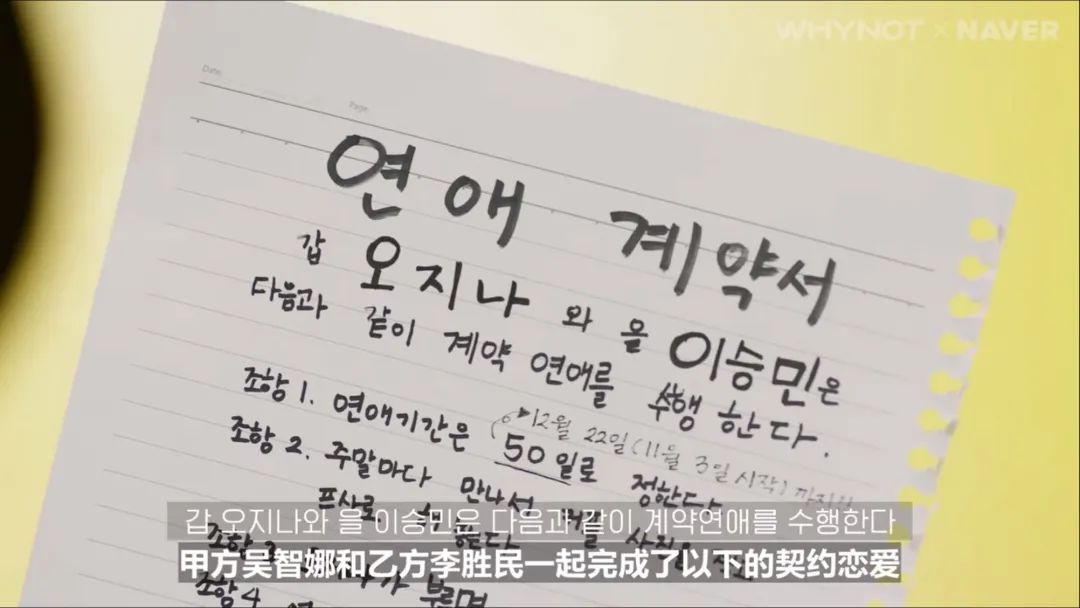 WHYNOT × NAVER
Date.
Page.
연애 계약서
갑 오지나 와 을 이승민은
다음과 같이 계약 연애를 수행 한다.
12월 22일(11월 3일 시작) 까지
조항 1. 연애기간은 50일로 정한다
조항 2. 주말마다 만나서 커플 사진을
프사로
조항 부르면
조항 4
갑 오지나와 을 이승민은 다음과 같이 계약연애를 수행한다
甲方吴智娜和乙方李胜民一起完成了以下的契约恋爱